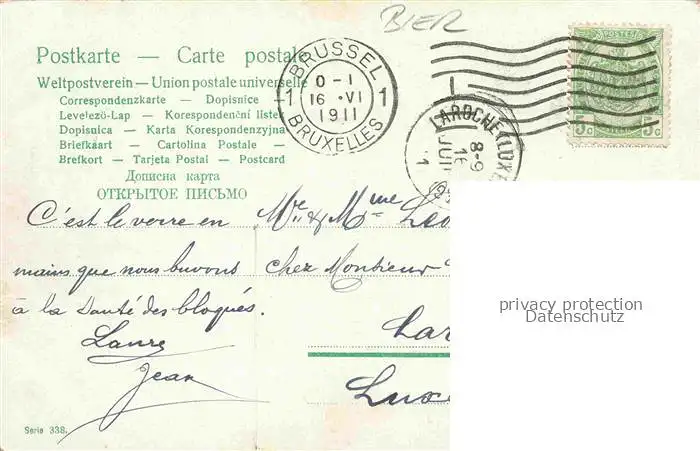 BIER
Postkarte — Carte postale
Weltpostverein — Union postale universelle
Correspondenzkarte — Dopisnice
Levelező-Lap — Korespondenční listek
Dopisnica — Karta Korespondenzyjna
Briefkaart — Cartolina Postale —
Brefkort — Tarjeta Postal — Postcard
Дописна карта
ОТКРЫТОЕ ПИСЬМО
BRUSSEL
0-1
1 16 VI 1
1911
BRUXELLES
LAROCHETTE
8-9
16
JUI
11
POSTES
5c 5c
C'est le verre en
mains que nous buvons
à la Santé des bloqués.
Laure
Jean
Mr & Mme Leo
chez Monsieur
Lar
Luxe
privacy protection
Datenschutz
Serie 338.